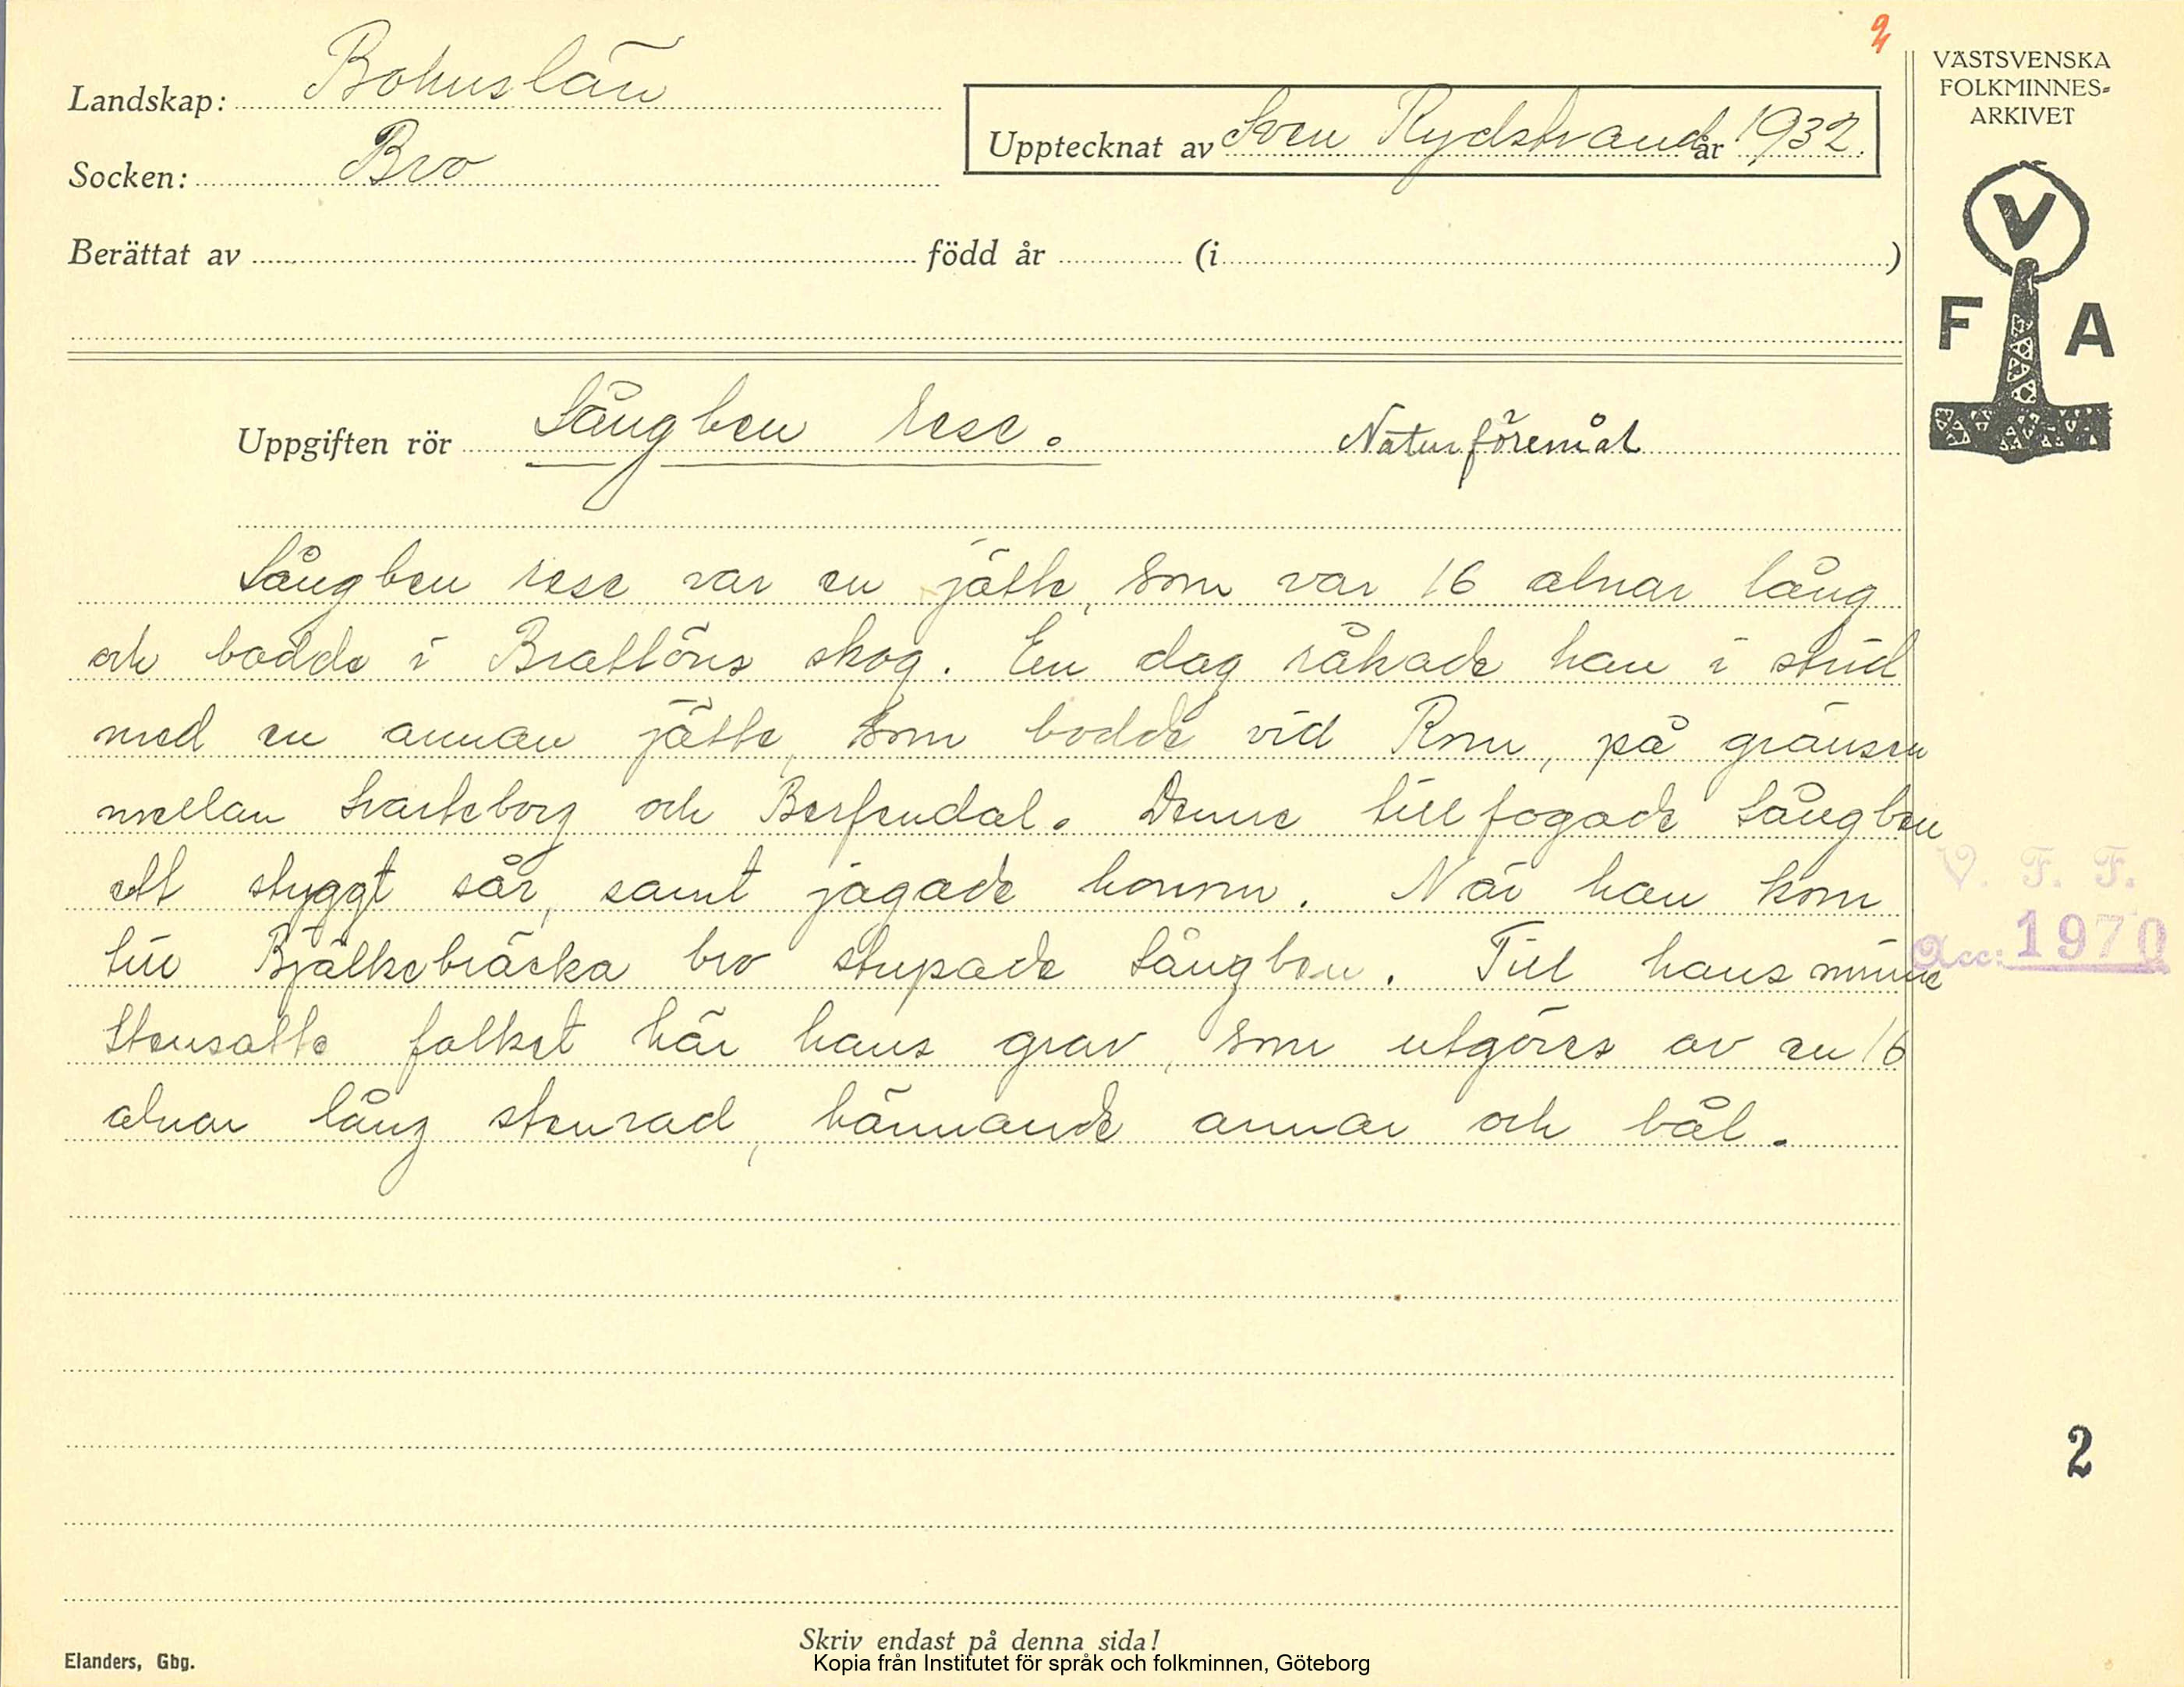 2
Landskap: Bohuslän
Upptecknat av Sven Rydstrand år 1932.
Socken: Bro
Berättat av född år (i )
VÄSTSVENSKA
FOLKMINNES-
ARKIVET
V
F A
Uppgiften rör Långben rese. Naturföremål
Långben rese var en jätte, som var 16 alnar lång
och bodde i Brattöns skog. En dag råkade han i strid
med en annan jätte, som bodde vid Rom, på gränsen
mellan Svarteborg och Berfendal. Denne tillfogade Långben
ett styggt sår, samt jagade honom. När han kom
till Bjälkebräcka bro stupade Långben. Till hans minne
stensatte folket här hans grav, som utgöres av en 16
alnar lång stenrad, hännande armar och bål.
V. F. F.
Acc: 1970
2
Skriv endast på denna sida!
Elanders, Gbg.
Kopia från Institutet för språk och folkminnen, Göteborg